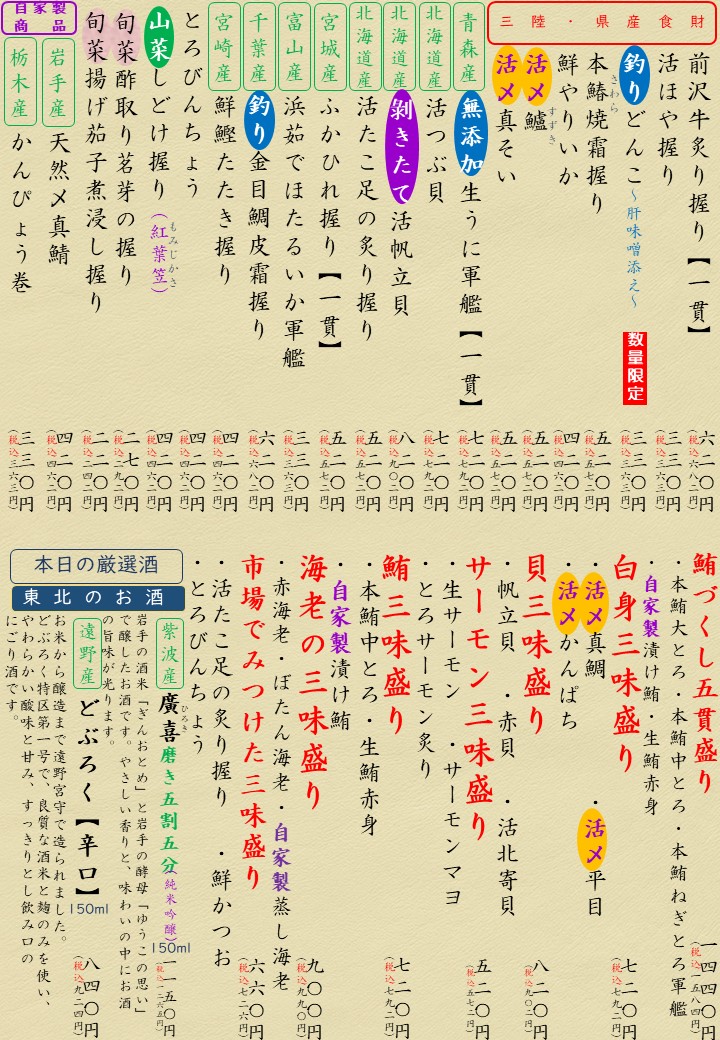 三陸・県産食財
前沢牛炙り握り【一貫】
六二〇円
(税込六八二円)
活ほや握り
三三〇円
(税込三六三円)
釣りどんこ～肝味噌添え～
数量限定
三三〇円
(税込三六三円)
本鰆焼霜握り
さわら
五二〇円
(税込五七二円)
鮮やりいか
四二〇円
(税込四六二円)
活〆鱸
すずき
五二〇円
(税込五七二円)
活〆真そい
五二〇円
(税込五七二円)
青森産
無添加生うに軍艦【一貫】
七二〇円
(税込七九二円)
北海道産
活つぶ貝
七二〇円
(税込七九二円)
北海道産
剝きたて活帆立貝
八二〇円
(税込九〇二円)
北海道産
活たこ足の炙り握り
五二〇円
(税込五七二円)
宮城産
ふかひれ握り【一貫】
五二〇円
(税込五七二円)
富山産
浜茹でほたるいか軍艦
三三〇円
(税込三六三円)
千葉産
釣り金目鯛皮霜握り
六二〇円
(税込六八二円)
宮崎産
鮮鰹たたき握り
四二〇円
(税込四六二円)
とろびんちょう
四二〇円
(税込四六二円)
山菜しどけ握り(紅葉笠)
もみじかさ
四二〇円
(税込四六二円)
旬菜酢取り茗芽の握り
二七〇円
(税込二九七円)
旬菜揚げ茄子煮浸し握り
二二〇円
(税込二四二円)
自家製
商品
岩手産
天然〆真鯖
四二〇円
(税込四六二円)
栃木産
かんぴょう巻
三三〇円
(税込三六三円)
鮪づくし五貫盛り
一四四〇円
(税込一五八四円)
・本鮪大とろ・本鮪中とろ・本鮪ねぎとろ軍艦
・自家製漬け鮪・生鮪赤身
白身三味盛り
七二〇円
(税込七九二円)
・活〆真鯛・活〆平目
・活〆かんぱち
貝三味盛り
七二〇円
(税込七九二円)
・帆立貝・赤貝・活北寄貝
サーモン三味盛り
五二〇円
(税込五七二円)
・生サーモン・サーモンマヨ
・とろサーモン炙り
鮪三味盛り
七二〇円
(税込七九二円)
・本鮪中とろ・生鮪赤身
・自家製漬け鮪
海老の三味盛り
九〇〇円
(税込九九〇円)
・赤海老・ぼたん海老・自家製蒸し海老
市場でみつけた三味盛り
六六〇円
(税込七二六円)
・活たこ足の炙り握り・鮮かつお
・とろびんちょう
本日の厳選酒
東北のお酒
紫波産
廣喜磨き五割五分(純米吟醸)
ひろき
150ml
一一五〇円
(税込一二六五円)
岩手の酒米「ぎんおとめ」と岩手の酵母「ゆうこの思い」
で醸したお酒です。やさしい香りと、味わいの中にお酒
の旨味が光ります。
遠野産
どぶろく【辛口】
150ml
八四〇円
(税込九二四円)
お米から醸造まで遠野宮守で造られました。
どぶろく特区第一号で、良質な酒米と麹のみを使い、
やわらかい酸味と甘み、すっきりとし飲み口の
にごり酒です。